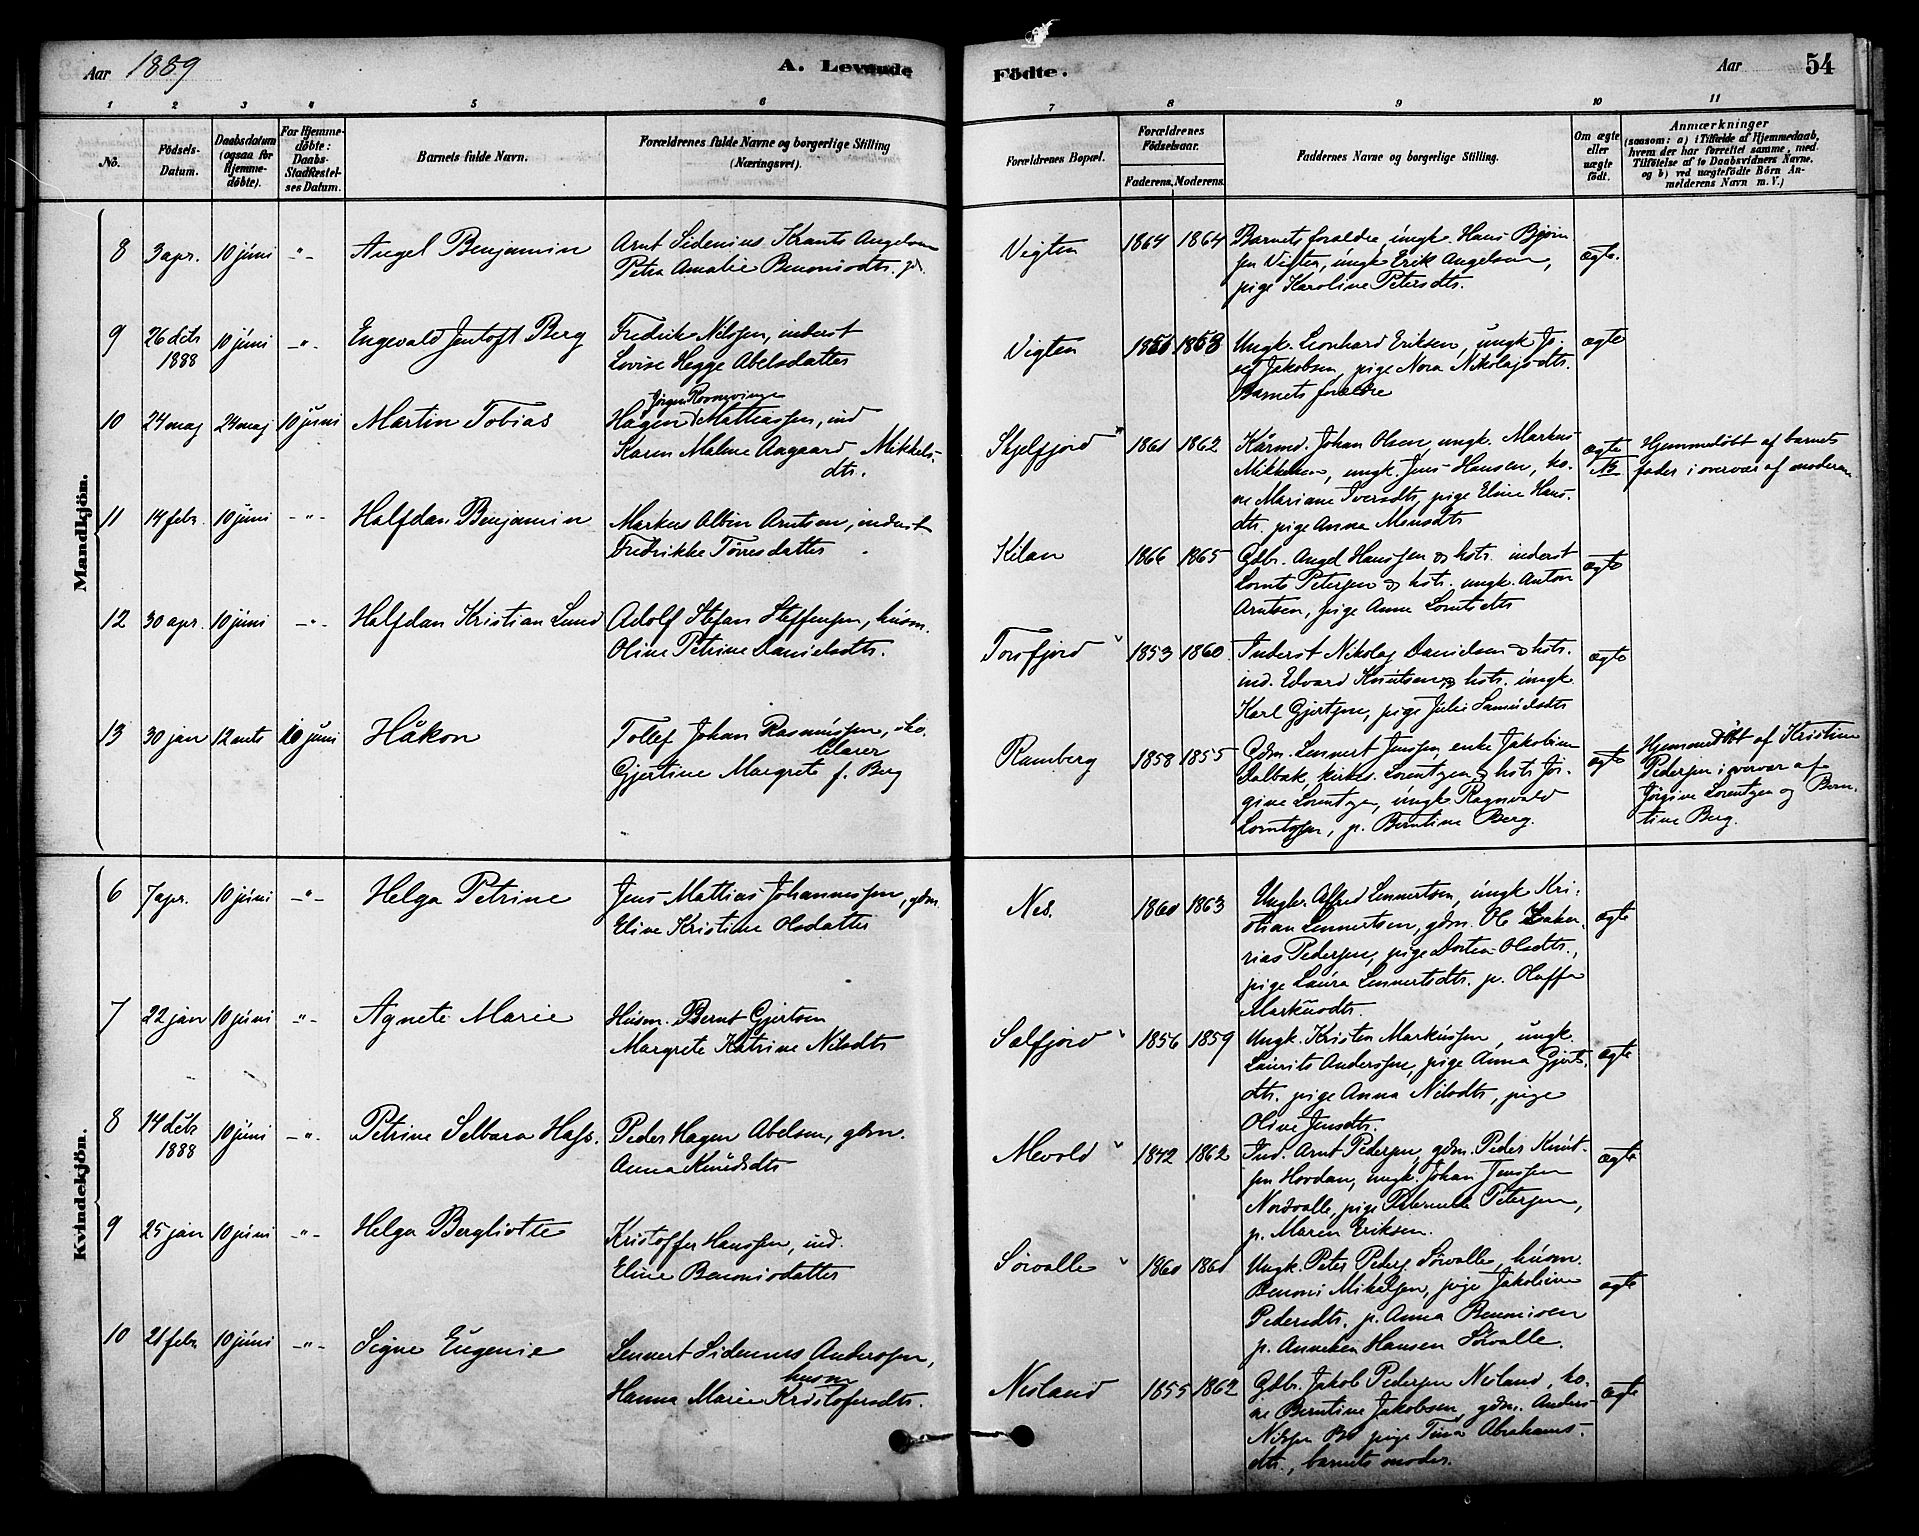 Aar 1889
A. Levende
Födte.
Aar
54
1 2 3 4 5 6 7 8 9 10 11
No.
Födsels-
Datum.
Daabsdatum
(ogsaa for
Hjemme-
döbte).
For Hjemme-
döbte:
Daabs-
Stadfæstel-
ses Datum.
Barnets fulde Navn.
Forældrenes fulde Navne og borgerlige Stilling
(Næringsvei).
Forældrenes Bopæl.
Forældrenes
Födselsaar.
Faderens. Moderens.
Faddernes Navne og borgerlige Stilling.
Om ægte
eller
uægte
födt.
Anmærkninger
(saasom: a) i Tilfælde af Hjemmedaab,
hvem der har forrettet samme, med
Tilföielse af to Daabsvidners Navne.
og b) ved uægtefödte Börn An-
melderens Navn m. V.)
Mandkjön.
8 3 apr. 10 juni -"- Angel Benjamin
Arnt Sidenius Krants Angelsen
Petra Amalie Benonisdts.
Vigten 1864 1864
Barnets foraldre, ungk. Hans Bjørn
sen Vigten, ungk Erik Angelsen,
pige Karoline Petersdts.
ægte.
9 26 dcbr 1888 10 juni -"- Engevald Jentoft Berg
Fredrik Nilssen, inderst
Lovise Hegge Abelsdatter
Vigten 1858
Ungk. Leonhard Eriksen, ungk Jo-
sef Jakobsen, pige Nora Nikolajsdts.
Barnets forældre
ægte
10 24 maj 24 maj 10 juni Martin Tobias
Jørgen
Hagen Mathiassen, ind
Karen Maline Aagaard Mikkels-
dts.
Skjelfjord " 1861 1862
Kårmd. Johan Olsen, ungk. Markus
Mikkelsen, ungk. Jens Hansen, ko-
ne Mariane Iversdts, pige Eline Hans-
dts. pige Anna Monsdts
ægte
NB
Hjemmedöbt af barnets
fader i overvær af moderen
11 14 febr. 10 juni -"- Halfdan Benjamin
Markus Albin Arntsen, inderst
Fredrikke Torresdatter
Kilan 1866 1865
Gdbr. Angel Hanssen & hstr. inderst
Lornts Petersen & hstr. ungk. Anton
Arntsen, pige Anne Lorntsdts
ægte
12 30 apr. 10 juni -"- Halfdan Kristian Lund
Adolf Stefan Steffensen, husm.
Oline Petrine Danielsdts.
Torsfjord " 1853 1860
Inderst Nikolaj Danielsen & hstr.
ind. Edvard Knutsen & hstr. ungk
Karl Gjertsen, pige Julie Samuelsdts
ægte
13 30 jan 12 mts 10 juni Håkon
Tollef Johan Rasmussen, sko-
lelærer
Gjertine Margrete f. Berg
Ramberg 1858 1855
Gdm. Lennert Jenssen, enke Jakobine
Kalbak, kirkes. Lorentzen & hstr. Jør-
gine Lorentzen, ungk Ragnvald
Lorntzen, p. Berntine Berg.
ægte
Hjemmedöbt af Kristine
Pedersen i overvær af
Jørgine Lorentzen og Bern-
tine Berg.
Kvindekjön.
6 7 apr. 10 juni -"- Helga Petrine
Jens Mattias Johannessen, gdm.
Eline Kristine Olsdatter
Nes. 1860 1863
Ungk. Alfred Lennertsen, ungk Kri-
stian Lennertsen, gdm. Ol Zaka-
rias Pedersen, pige Dortea Olsdts.,
pige Laura Lennertsdts. p. Oluffa
Markusdts.
ægte
7 22 jan 10 juni -"- Agnete Marie
Husm. Bernt Gjertsen
Margrete Katrine Nilsdts
Solfjord " 1856 1859
Ungk. Kristen Markussen, ungk.
Laurits Anderssen, pige Anna Gjerts-
dts. pige Anna Nilsdts, pige
Oline Jensdts.
ægte
8 14 dcbr 1888 10 juni -"- Petrine Selbara Hass.
Peder Hagen Abelsen, gdm.
Anna Knudsdts
Mevold " 1842 1862
Ind. Arnt Pedersen, gdm. Peder Knut-
sen Hovdan, ungk. Johan Jenssen
Nordvalle, pige Petersen,
p. Maren Eriksen.
ægte
9 25 jan 10 juni -"- Helga Bergliotte
Kristoffer Hanssen, ind.
Eline Benonisdatter
Sörvalle " 1860 1860
Ungk. Peter Peders. Sörvalle, husm.
Benoni Mikalsen, pige Jakobine
Pedersdts. p. Anna Bennisen
p. Anneken Hansen Sörvalle.
ægte
10 21 febr 10 juni -"- Signe Eugenie
Lennert Sidenius Anderssen,
husm
Hanna Marie Kristofersdts.
Nesland 1855 1862
Gdbr. Jakob Pedersen Nesland, ko-
ne Berntine Jakobsen, gdm. Anders
Nilssen Bø pige Tina Abrahams-
dts., barnets moder.
ægte